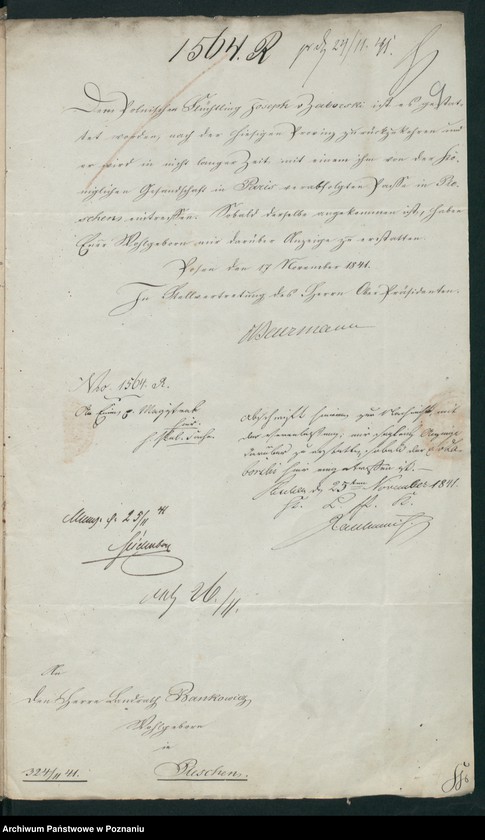 1564. R pr d 24/11. 41.
Dem Polnischen Flüchtling Joseph v Zabowski ist es gestat-
tet worden, nach der hiesigen Provinz zurückzukehren und
er wird in nicht langer Zeit mit einem ihm von der Kö-
niglichen Gesandschaft in Paris verabfolgten Passe in Ple-
schen eintreffen. Sobald derselbe angekommen ist, haben
Eure Wohlgeborn mir darüber Anzeige zu erstatten.
Posen den 17 November 1841.
In Stellvertretung des Herrn Ober Präsidenten.
Beurmann
Nro. 1564. R.
An Einen Magistrat
hier.
Abschrift hiervon zur Nachricht mit
der Veranlassung, mir sogleich Anzeige
darüber zu erstatten, sobald der
hier eingetroffen ist. —
d. 23ten November 1841.
K. L. R.
23/11 41
26/11.
An
den Herrn Landrath Bankowicz
Wohlgeborn
in
Pleschen.
324/11 41.
Archiwum Państwowe w Poznaniu